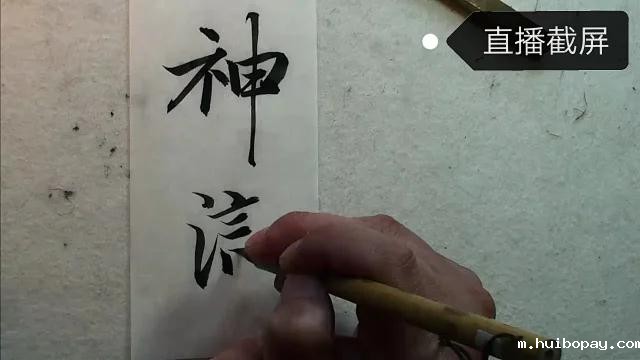 直播截屏
神
m.huibopay.com